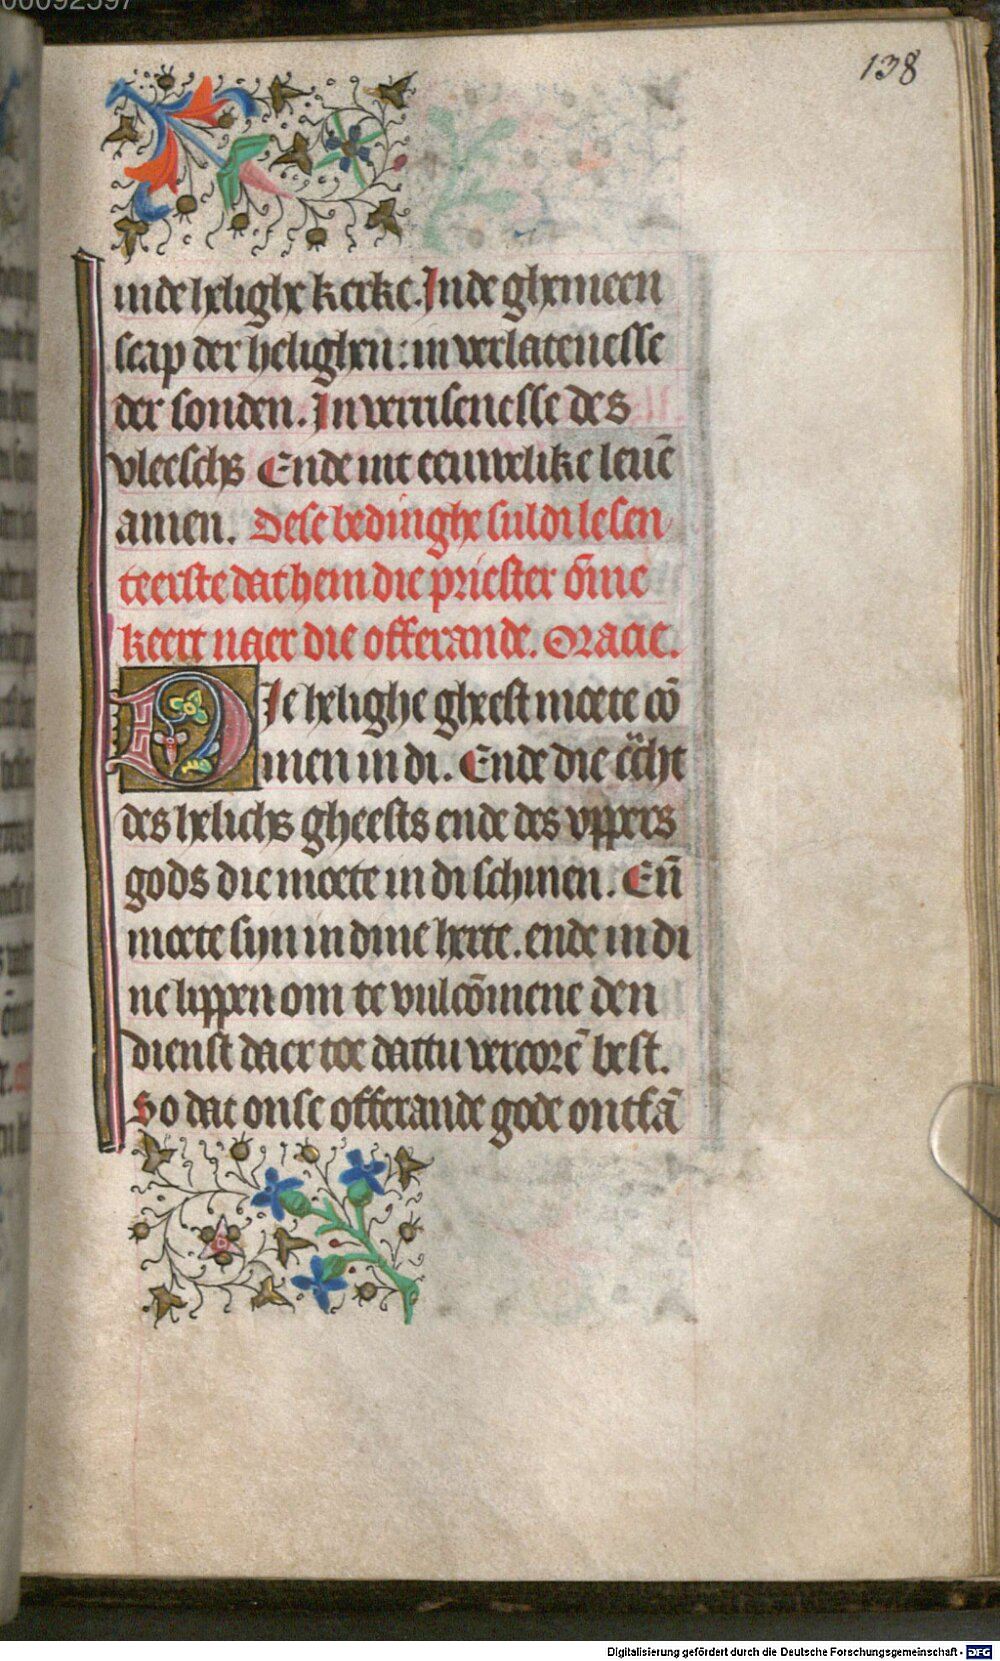 00092597
138
in de helighe kerke. In de ghemeen
scap der helighen: in verlatenesse
der sonden. In verrisenesse des
vleeschs Ende int eeuwelike leuē
amen. Dese bedinghe suldi lesen
teerste dat hem die priester ōme
keert naer die offerande. Oracie.
Die helighe gheest moete cō
men in di. Ende die c̄cht
des helichs gheests ende des vppers
gods die moete in di schinen. Eñ
moete sijn in dine herte. ende in di
ne lippen om te vulcōmene den
dienst daer toe dattu vercorē best.
So dat onse offerande gode ontfā
Digitalisierung gefördert durch die Deutsche Forschungsgemeinschaft - DFG